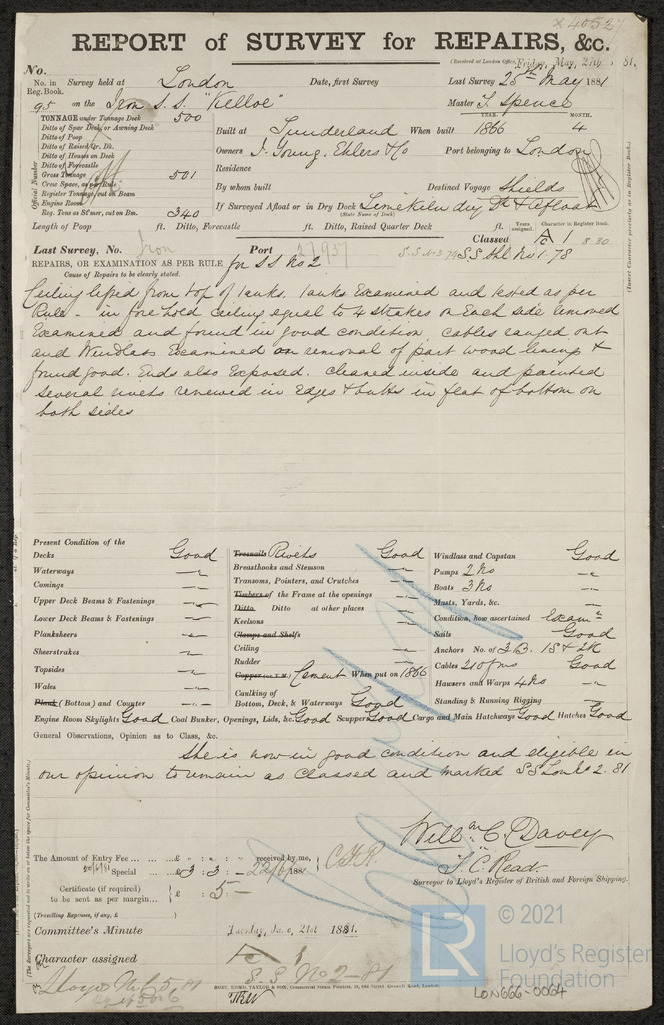 x 40527
REPORT of SURVEY for REPAIRS, &c.
(Received at London Office, Friday, May, 27th 81.
No.
No. in Reg. Book. Survey held at London Date, first Survey Last Survey 25th May 1881
95 on the Iron S.S. "Kelloe" Master T. Spence
TONNAGE under Tonnage Deck 500
Ditto of Spar Deck or Awning Deck
Ditto of Poop
Ditto of Raised Qr. Dk.
Ditto of Houses on Deck
Ditto of Forecastle
Gross Tonnage 501
Crew Space, as per Rule
Register Tonnage, cut on Beam
Engine Room
Reg. Tons as St'mer, cut on Bm. 340
Official Number
Built at Sunderland When built YEAR. 1866 MONTH. 4
Owners J. Young, Ehlers & Co Port belonging to London
Residence
By whom built Destined Voyage Shields
If Surveyed Afloat or in Dry Dock Limekiln dry Dk & Afloat
(State Name of Dock)
Length of Poop ft. Ditto, Forecastle ft. Ditto, Raised Quarter Deck ft. Years assigned. Character in Register Book.
Classed A 1 8.80
Last Survey, No. Iron Port 27957 S.S. No 3.74 S.S. Shl No 1.78
REPAIRS, OR EXAMINATION AS PER RULE for SS No 2
Cause of Repairs to be clearly stated.
(Insert Character precisely as in Register Book.)
Ceiling lifted from top of tanks. Tanks Examined and tested as per
Rule. - in fore hold Ceiling equal to 4 strakes on Each side removed
Examined and found in good condition Cables ranged out
and Windlass Examined on removal of part wood lining &
found good. Ends also Exposed. Cleaned inside and painted
Several rivets renewed in Edges & butts in flat of bottom on
both sides
Present Condition of the
Decks Good
Waterways
Comings
Upper Deck Beams & Fastenings
Lower Deck Beams & Fastenings
Planksheers
Sheerstrakes
Topsides
Wales
Plank (Bottom) and Counter
Treenails Rivets Good
Breasthooks and Stemson
Transoms, Pointers, and Crutches
Timbers of the Frame at the openings
Ditto Ditto at other places
Keelsons
Clamps and Shelfs
Ceiling
Rudder
Copper (or Y.M.) Cement When put on 1866
Caulking of
Bottom, Deck, & Waterways Good
Windlass and Capstan Good
Pumps 2 No
Boats 3 No
Masts, Yards, &c.
Condition, how ascertained Examn
Sails Good
Anchors No. of 3 B. 1S & 2K
Cables 210 fms Good
Hawsers and Warps 4 No
Standing & Running Rigging
Engine Room Skylights Good Coal Bunker, Openings, Lids, &c. Good Scuppers Good Cargo and Main Hatchways Good Hatches Good
General Observations, Opinion as to Class, &c.
She is now in good condition and eligible in
our opinion to remain as Classed and marked SS Lon No 2. 81
Willm C. Davey
T. C. Read.
Surveyor to Lloyd's Register of British and Foreign Shipping.
The Amount of Entry Fee ... ... £ : : received by me,
Special ... £3 : 3 : - 22/6 1881
Certificate (if required) to be sent as per margin... £ : 5 -
(Travelling Expenses, if any, £ )
Committee's Minute Tuesday, June 21st 1881.
Character assigned
S.S. No 2-81
HORT, EDMD. TAYLOR & SON, Commercial Steam Printers
LON666-0064
LR
© 2021
Lloyd's Register
Foundation